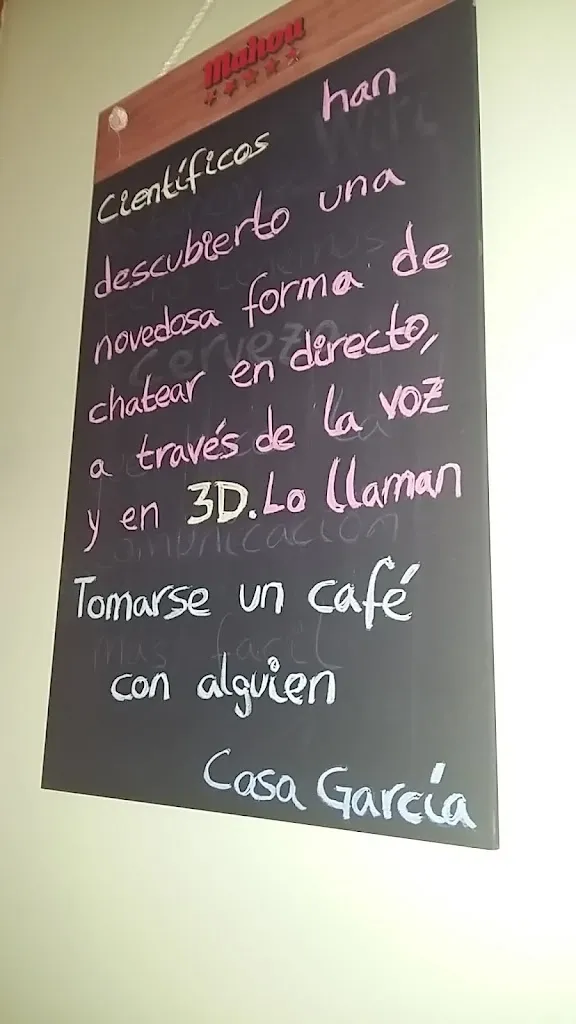 Mahou
Científicos han
descubierto una
novedosa forma de
chatear en directo,
a través de la voz
y en 3D. Lo llaman
Tomarse un café
con alguien
Casa García